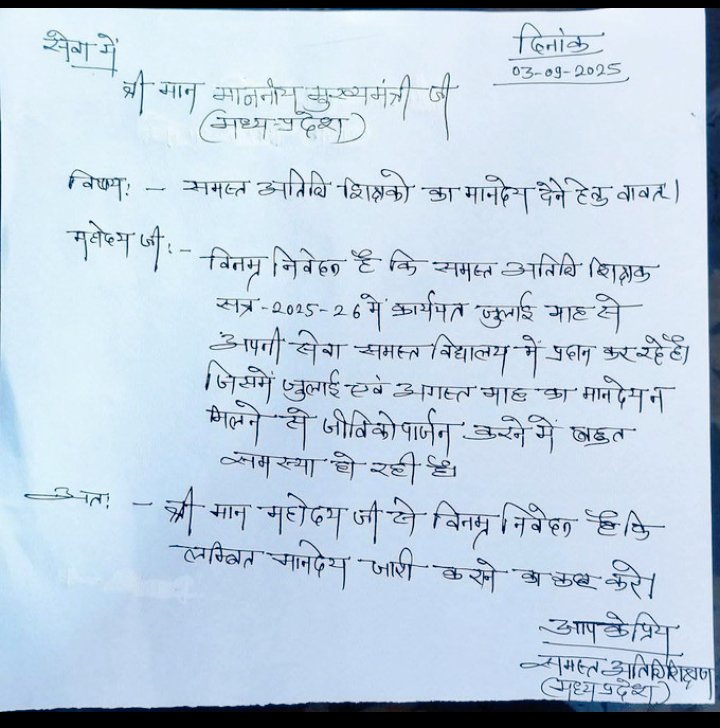 सेवा में
दिनांक
03-09-2025
श्री मान माननीय मुख्यमंत्री जी
(मध्य प्रदेश)
विषय: - समस्त अतिथि शिक्षको का मानदेय देने हेतु वावत।
महोदय जी: - विनम्र निवेदन है कि समस्त अतिथि शिक्षक
सत्र - 2025-26 में कार्यरत जुलाई माह से
अपनी सेवा समस्त विद्यालय में प्रदान कर रहे है।
जिसमें जुलाई एवं अगस्त माह का मानदेय न
मिलने से जीविकोपार्जन करने में बहुत
समस्या हो रही है।
अतः - श्री मान महोदय जी से विनम्र निवेदन है कि
लम्बित मानदेय जारी करने का कष्ट करे।
आपके प्रिय
समस्त अतिथि शिक्षगण
(मध्य प्रदेश)